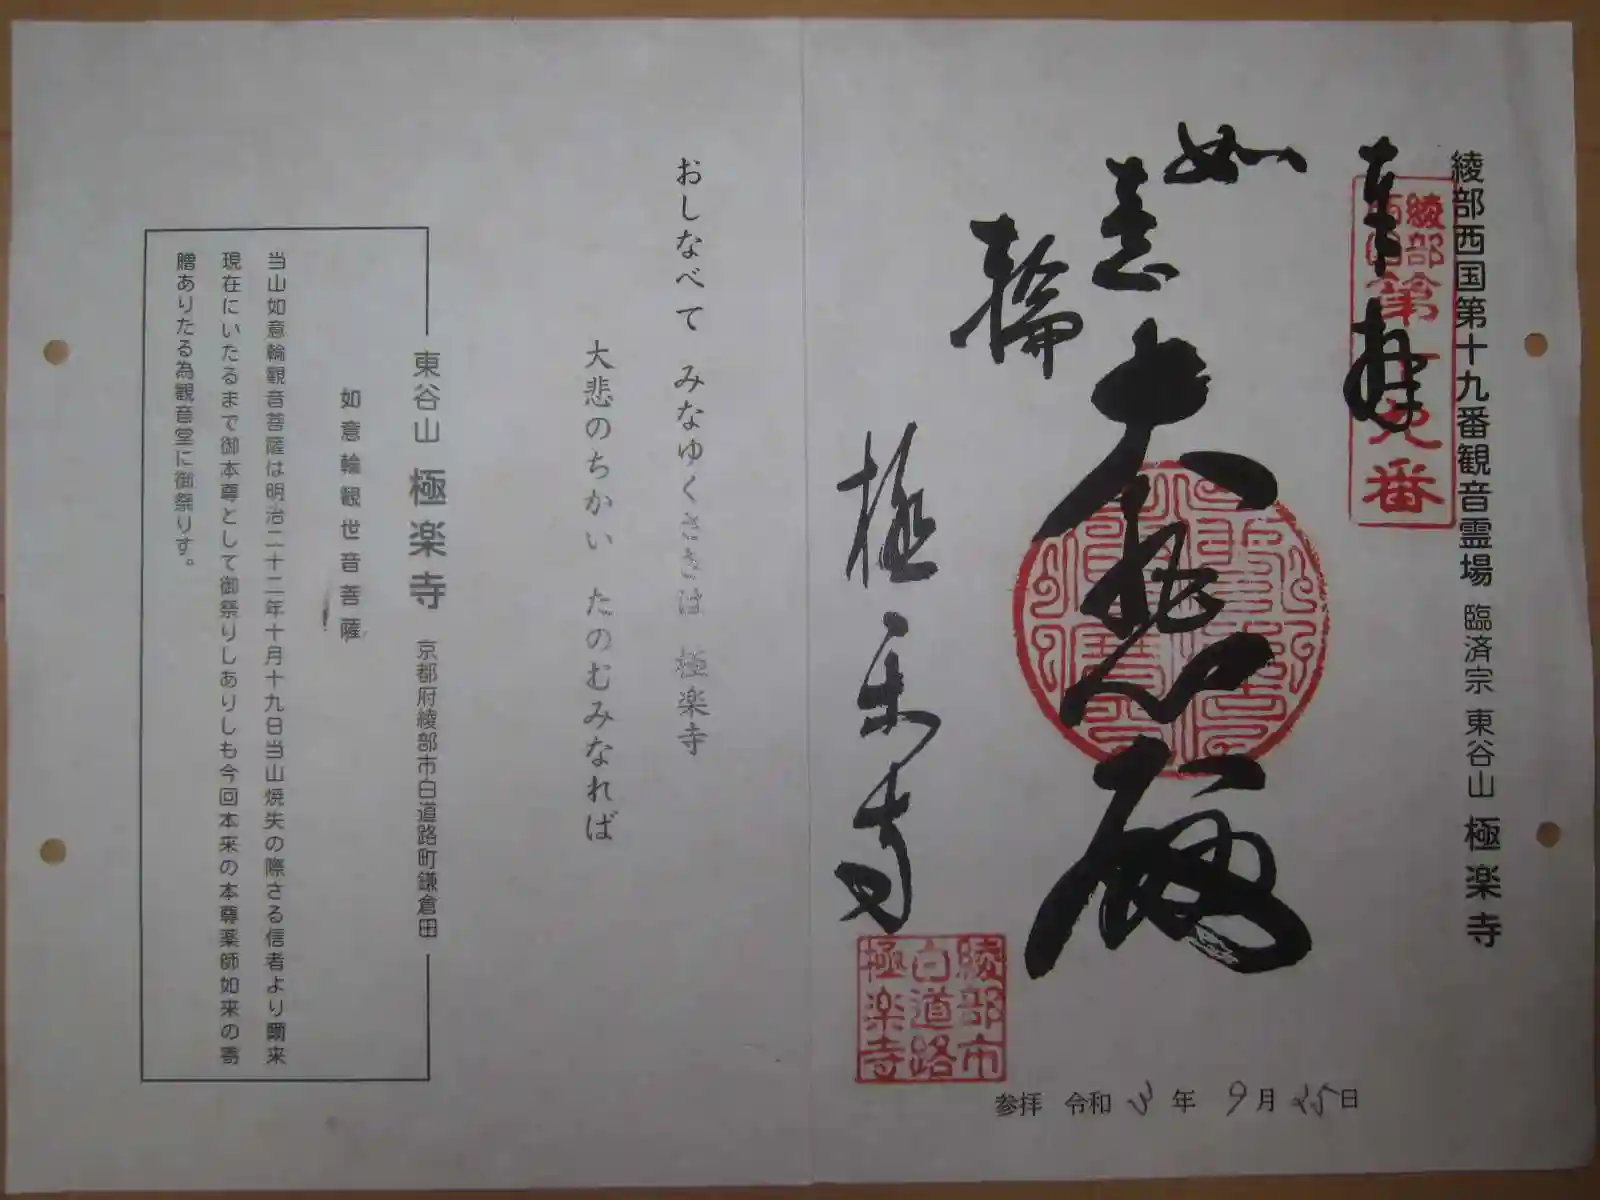 綾部西国第十九番観音霊場 臨済宗 東谷山 極楽寺
奉拝
綾部
西国
第十九番
如意輪
大悲殿
極楽寺
綾部市
白道路
極楽寺
参拝 令和 3 年 9 月 25 日
おしなべて みなゆくさきは 極楽寺
大悲のちかい たのむみなれば
東谷山 極楽寺 京都府綾部市白道路町鎌倉田
如意輪観世音菩薩
当山如意輪観音菩薩は明治二十二年十月十九日当山焼失の際さる信者より爾来
現在にいたるまで御本尊として御祭りしありしも今回本来の本尊薬師如来の寄
贈ありたる為観音堂に御祭りす。